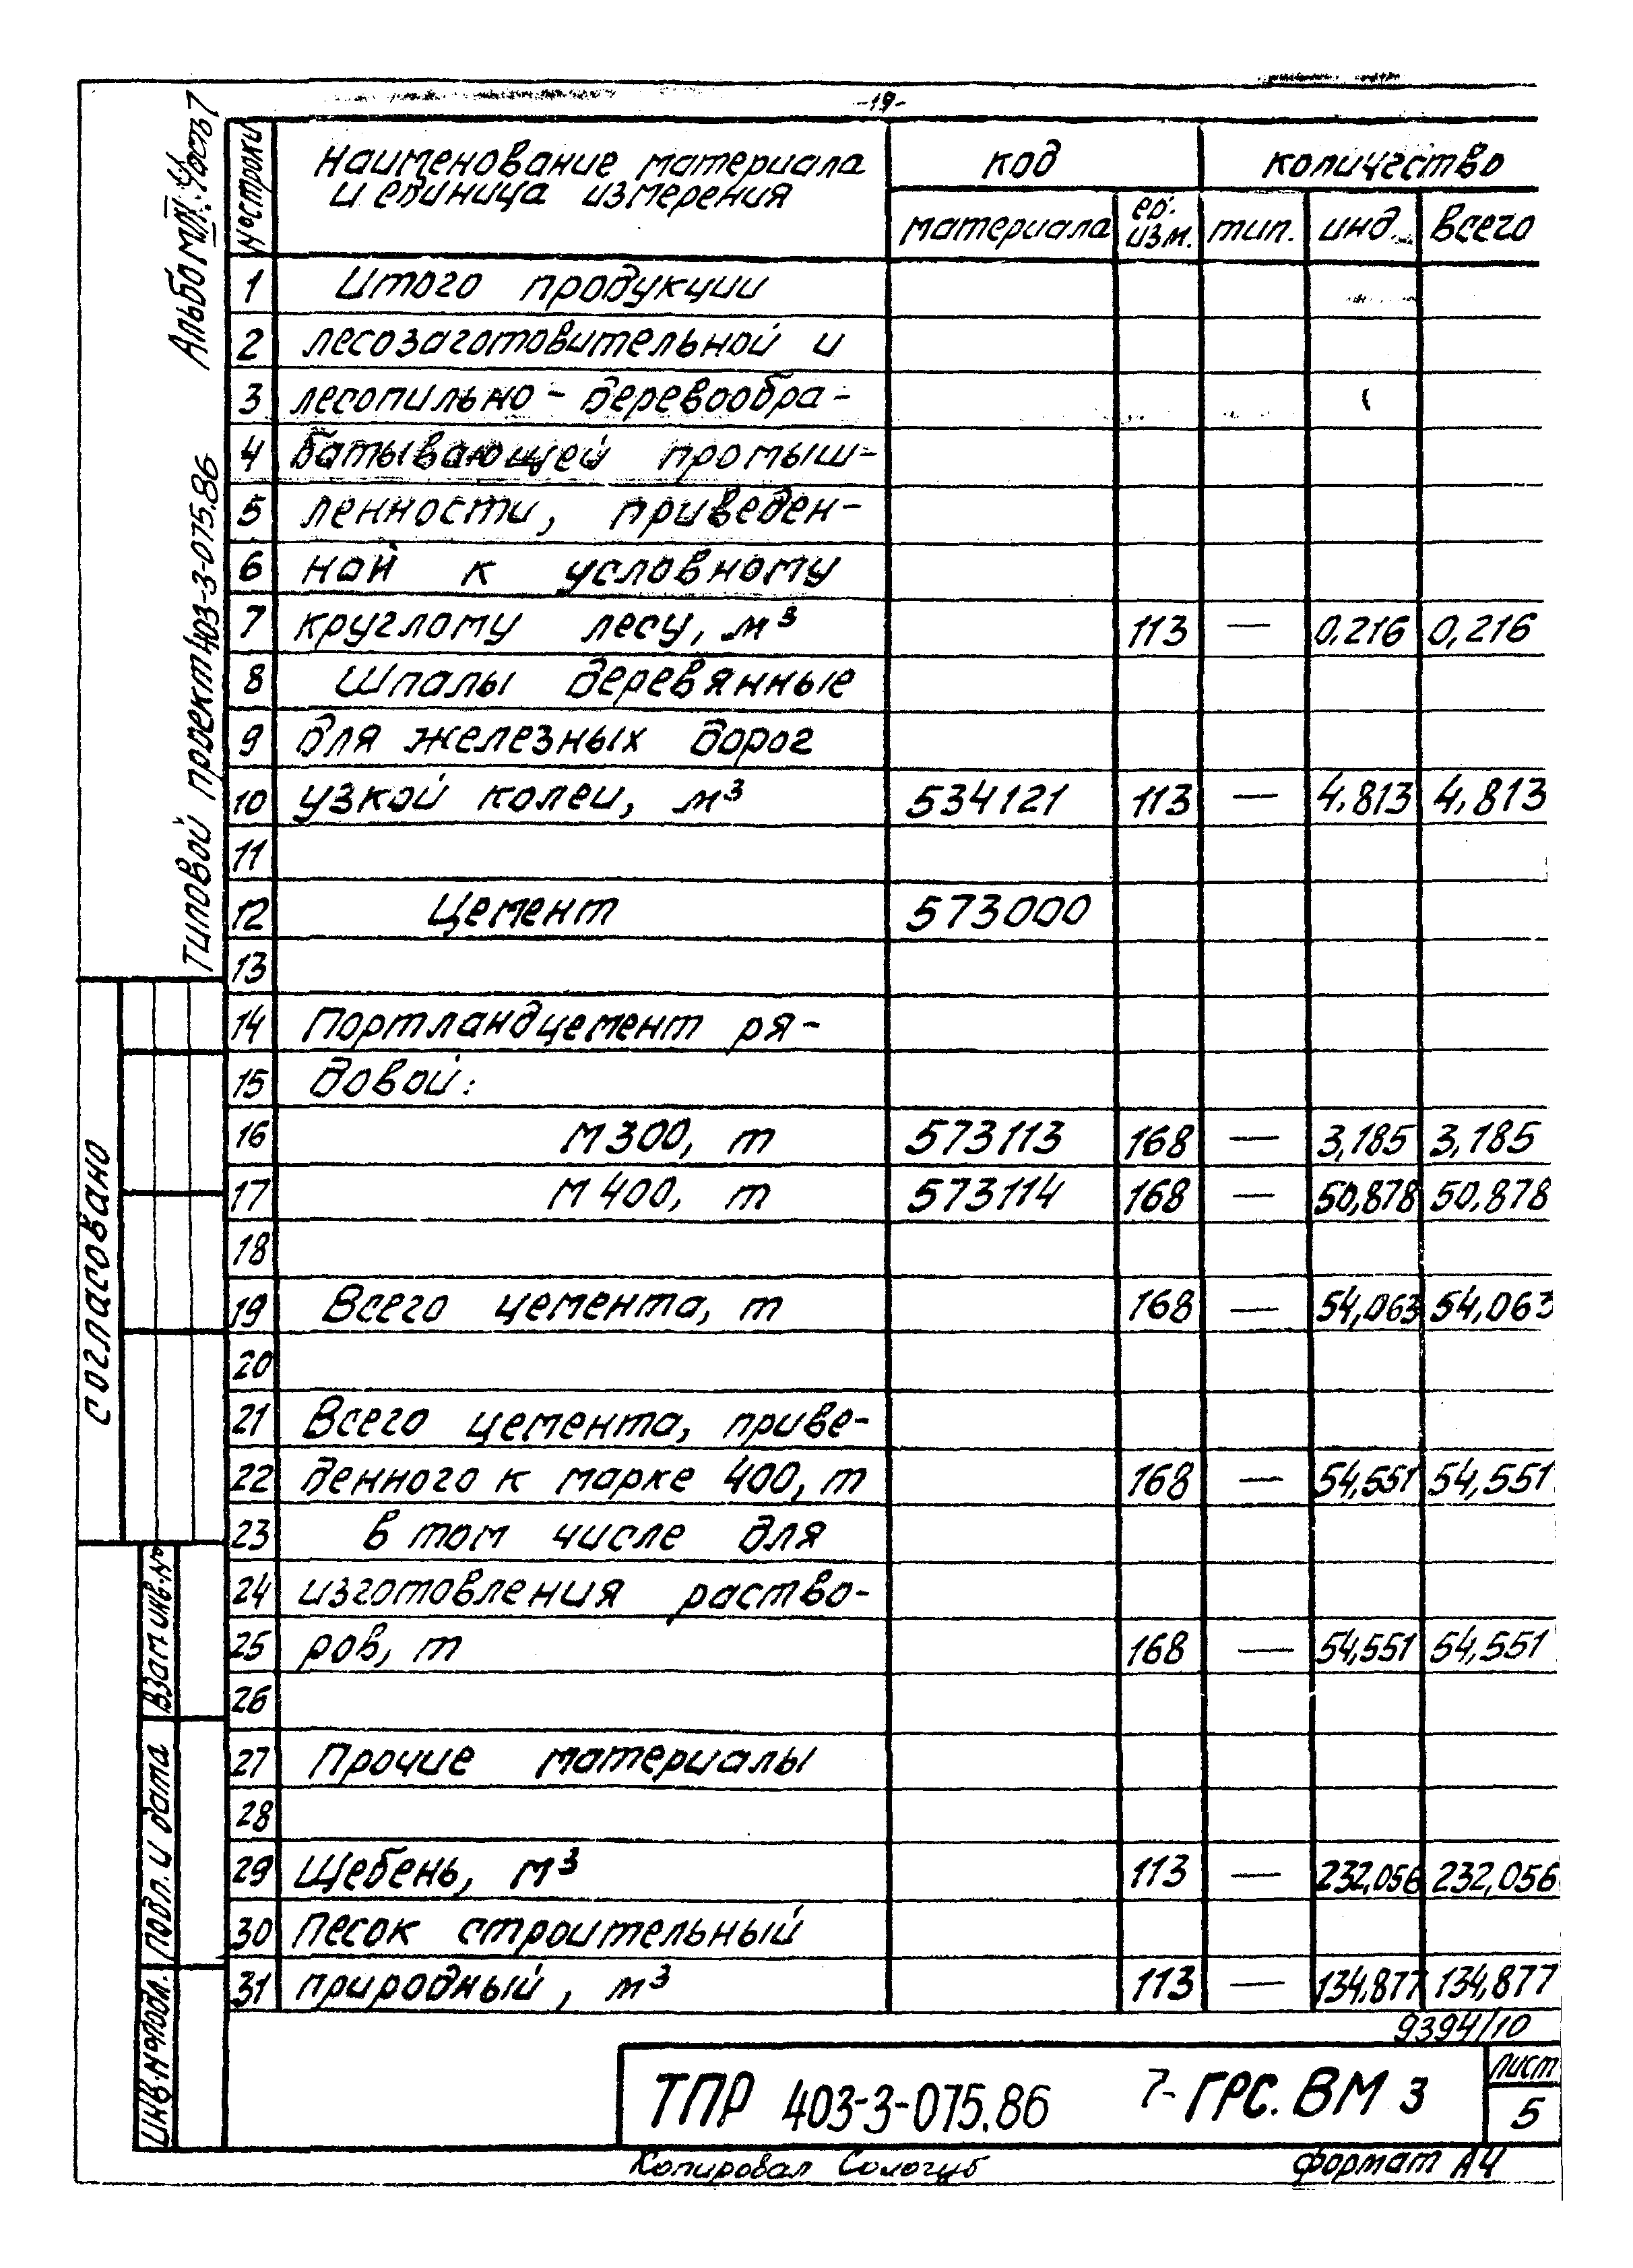 -19-
Альбом III. Часть 7
Типовой проект 403-3-075.86
№ строки
Наименование материала
и единица измерения
код
количество
материала
ед. изм.
тип.
инд.
всего
1 Итого продукции
2 лесозаготовительной и
3 лесопильно-деревообра-
4 батывающей промыш-
5 ленности, приведен-
6 ной к условному
7 круглому лесу, м³ 113 — 0,216 0,216
8 Шпалы деревянные
9 для железных дорог
10 узкой колеи, м³ 534121 113 — 4.813 4,813
11
12 Цемент 573000
13
14 Портландцемент ря-
15 довой:
16 М 300, т 573113 168 — 3,185 3,185
17 М 400, т 573114 168 — 50,878 50,878
18
19 Всего цемента, т 168 — 54,063 54,063
20
21 Всего цемента, приве-
22 денного к марке 400, т 168 — 54,551 54,551
23 в том числе для
24 изготовления раство-
25 ров, т 168 — 54,551 54,551
26
27 Прочие материалы
28
29 Щебень, м³ 113 — 232,056 232,056
30 Песок строительный
31 природный, м³ 113 — 134.877 134,877
согласовано
Взам инв.№
Подл. и дата
Инв.№ подл.
9394/10
ТПР 403-3-075.86 7-ГРС. ВМ 3
лист
5
Копировал Сологуб
формат А4